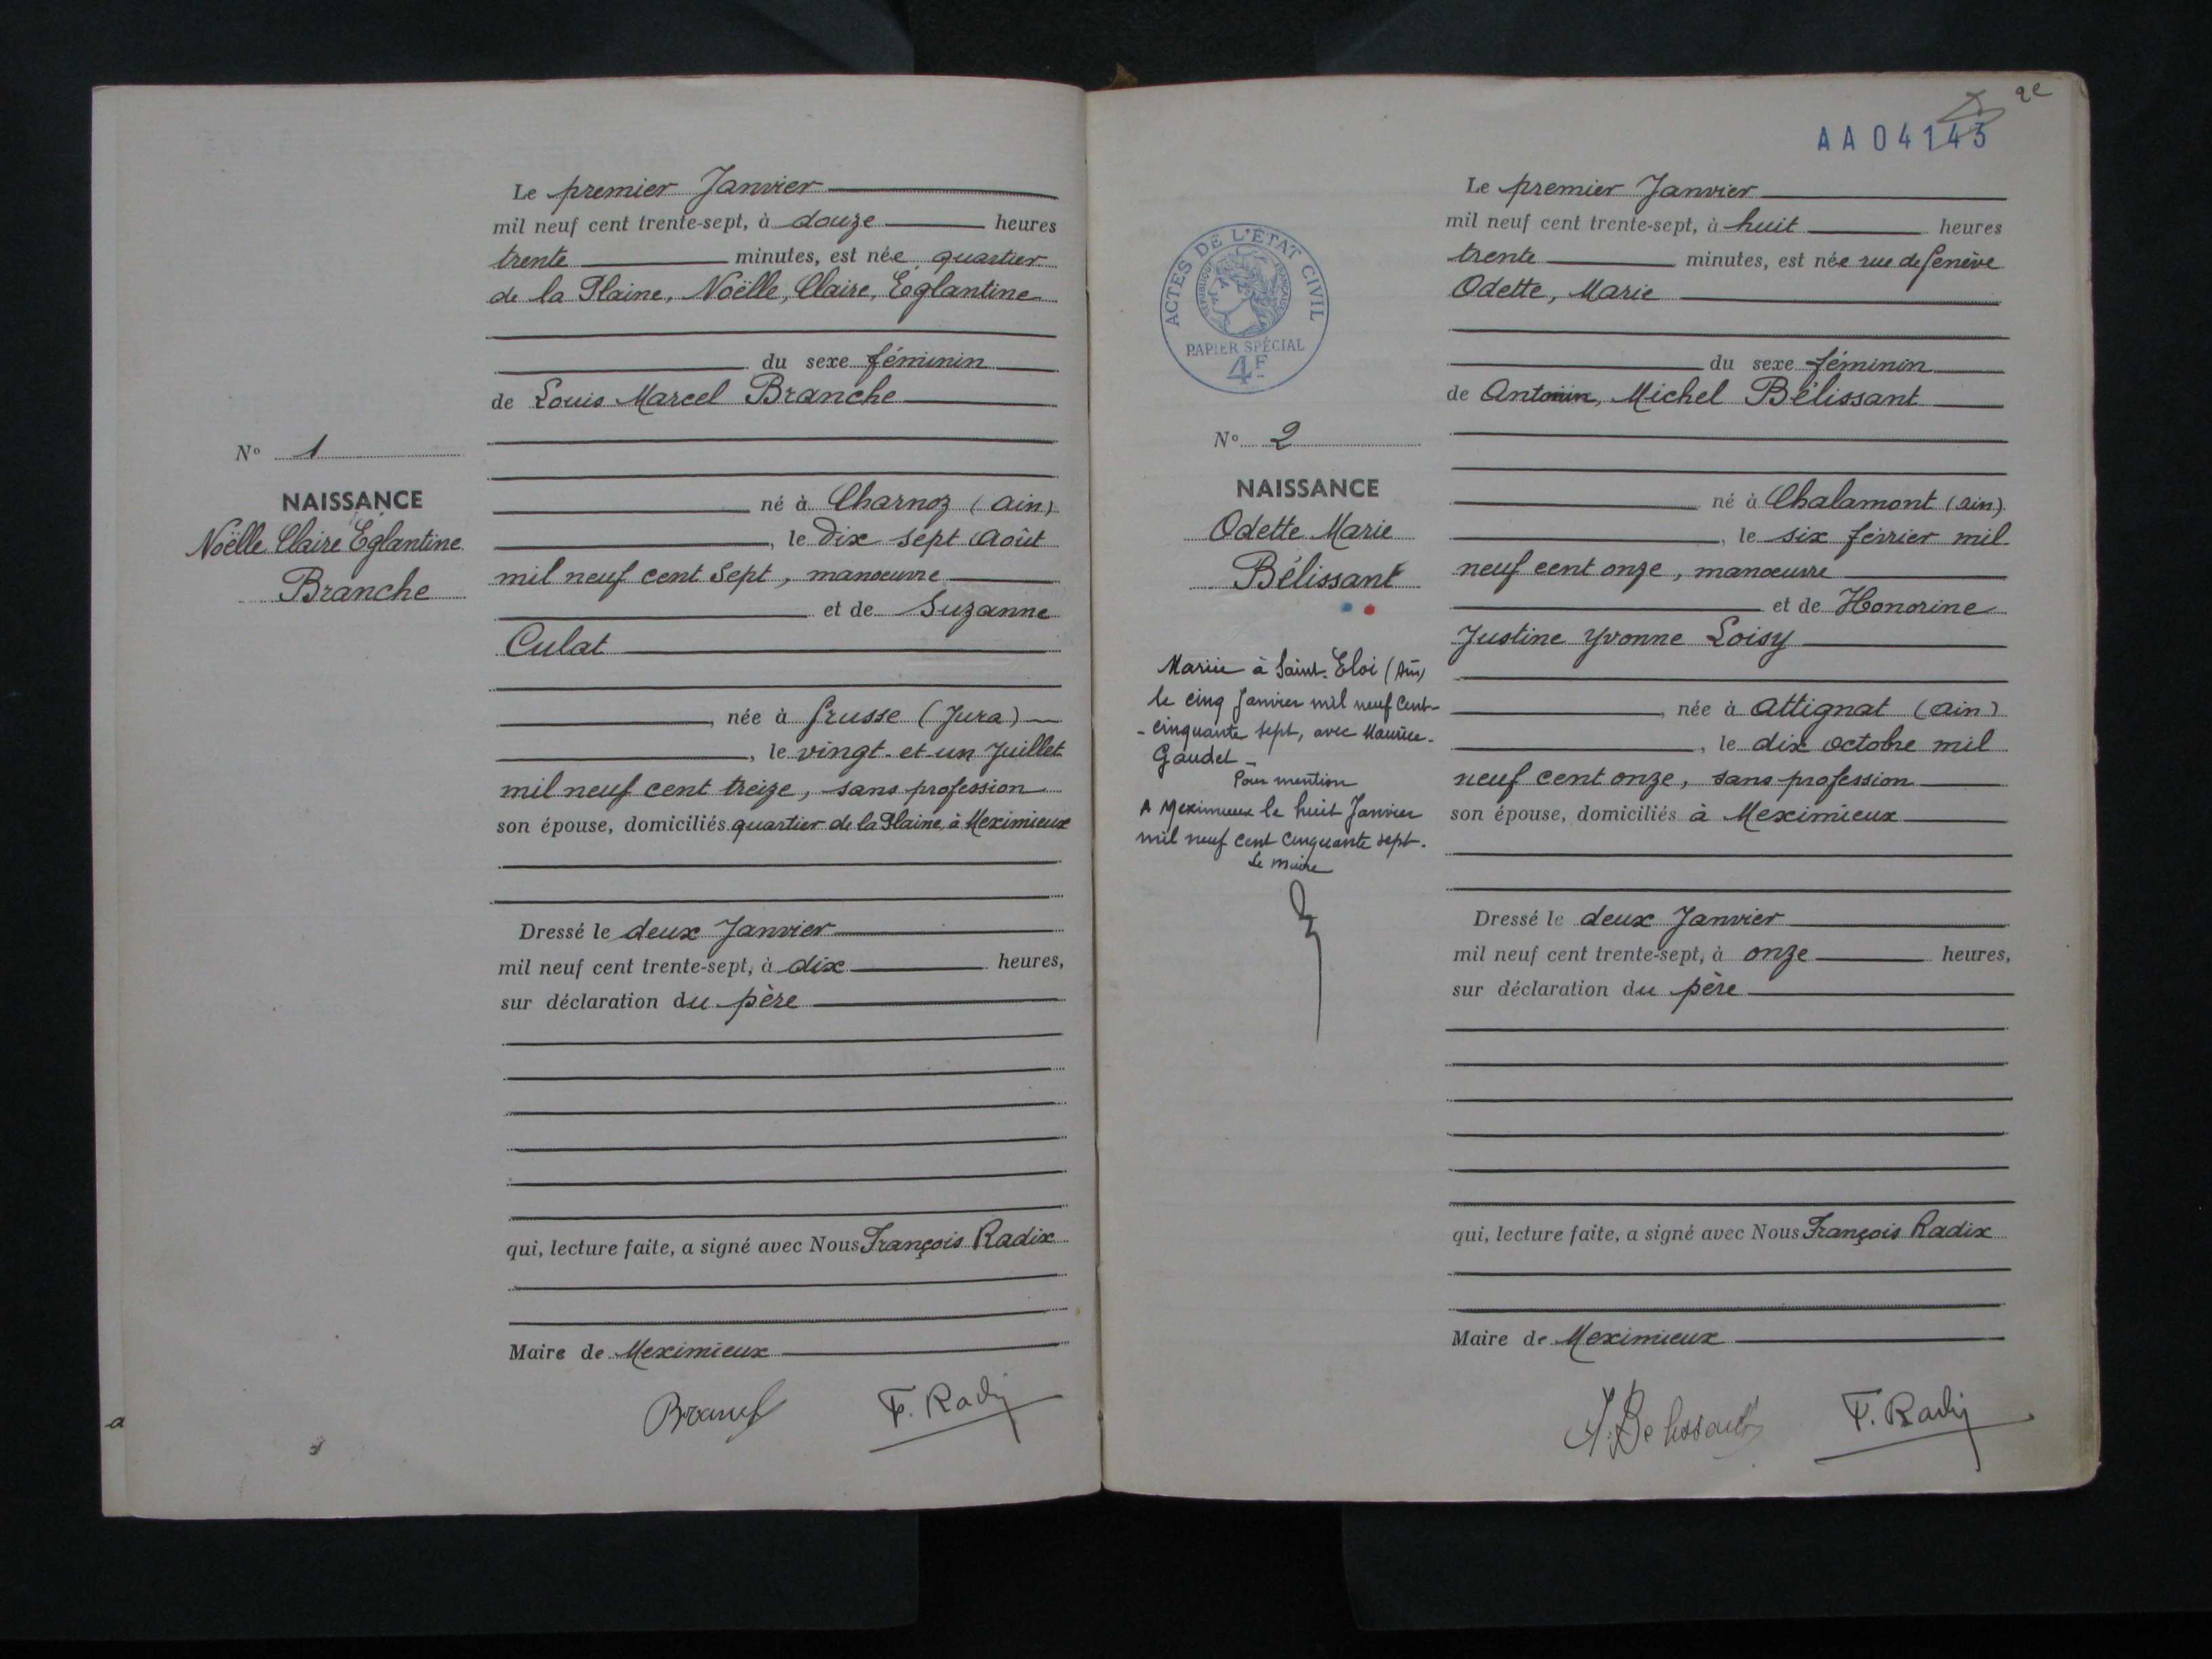 Le premier Janvier
mil neuf cent trente-sept, à douze heures
trente minutes, est née quartier
de la Plaine, Noëlle, Claire, Eglantine
du sexe féminin
de Louis Marcel Branche
né à Charnoz (Ain)
, le Dix sept Août
mil neuf cent sept, manœuvre
et de Suzanne
Culat
, née à Grusse (Jura)
, le vingt-et-un Juillet
mil neuf cent treize, sans profession
son épouse, domiciliés quartier de la Plaine, à Meximieux
Dressé le deux Janvier
mil neuf cent trente-sept, à dix heures,
sur déclaration du père
qui, lecture faite, a signé avec Nous François Radix
Maire de Meximieux
F. Radix
N° 1
NAISSANCE
Noëlle Claire Eglantine
Branche
2e
AA04143
ACTES DE L'ÉTAT CIVIL
RÉPUBLIQUE FRANÇAISE
PAPIER SPÉCIAL
4F
N° 2
NAISSANCE
Odette Marie
Bélissant
Mariée à Saint-Eloi (Ain)
le cinq Janvier mil neuf cent
-cinquante sept, avec Maurice
Gaudet
Pour mention
A Meximieux le huit Janvier
mil neuf cent cinquante sept.
Le maire
Le premier Janvier
mil neuf cent trente-sept, à huit heures
trente minutes, est née rue de Genève
Odette, Marie
du sexe féminin
de Antonin, Michel Bélissant
né à Chalamont (Ain)
, le six février mil
neuf cent onze, manœuvre
et de Honorine
Justine Yvonne Loisy
, née à Attignat (Ain)
, le dix octobre mil
neuf cent onze, sans profession
son épouse, domiciliés à Meximieux
Dressé le deux Janvier
mil neuf cent trente-sept, à onze heures,
sur déclaration du père
qui, lecture faite, a signé avec Nous François Radix
Maire de Meximieux
A. Belissant F. Radix